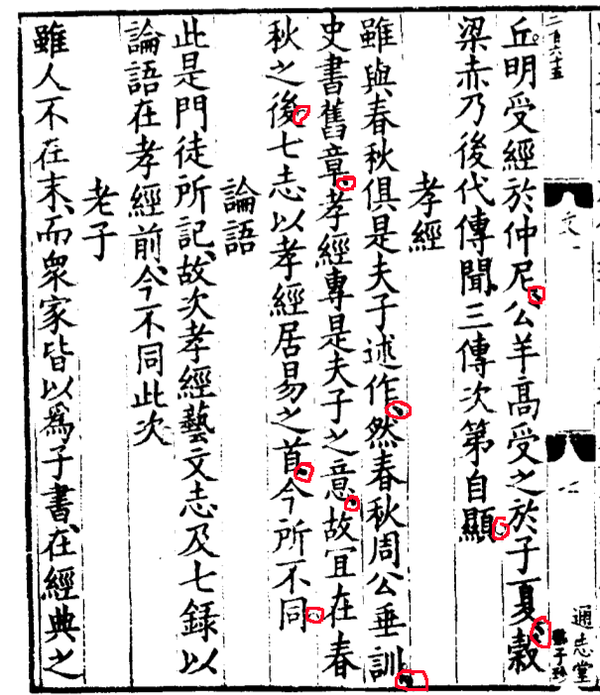 丘明受經於仲尼、公羊髙受之於子夏、穀
梁赤乃後代傳聞、三傳次第自顯、
孝經
雖與春秋俱是夫子述作、然春秋周公垂訓、
史書舊章、孝經專是夫子之意、故宜在春
秋之後、七志以孝經居易之首、今所不同、
論語
此是門徒所記、故次孝經藝文志及七録以
論語在孝經前、今不同此次
老子
雖人不在末、而衆家皆以爲子書、在經典之
二百六十五
通志堂